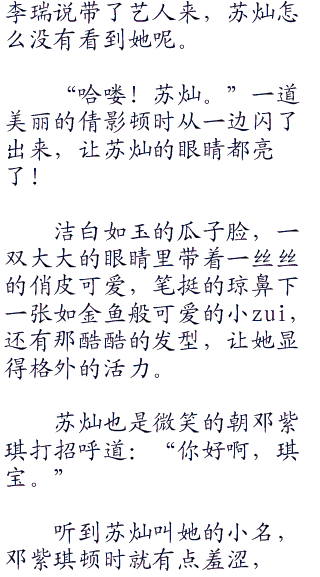 李瑞说带了艺人来，苏灿怎
么没有看到她呢。
“哈喽！苏灿。”一道
美丽的倩影顿时从一边闪了
出来，让苏灿的眼睛都亮
了！
洁白如玉的瓜子脸，一
双大大的眼睛里带着一丝丝
的俏皮可爱，笔挺的琼鼻下
一张如金鱼般可爱的小zui，
还有那酷酷的发型，让她显
得格外的活力。
苏灿也是微笑的朝邓紫
琪打招呼道：“你好啊，琪
宝。”
听到苏灿叫她的小名，
邓紫琪顿时就有点羞涩，